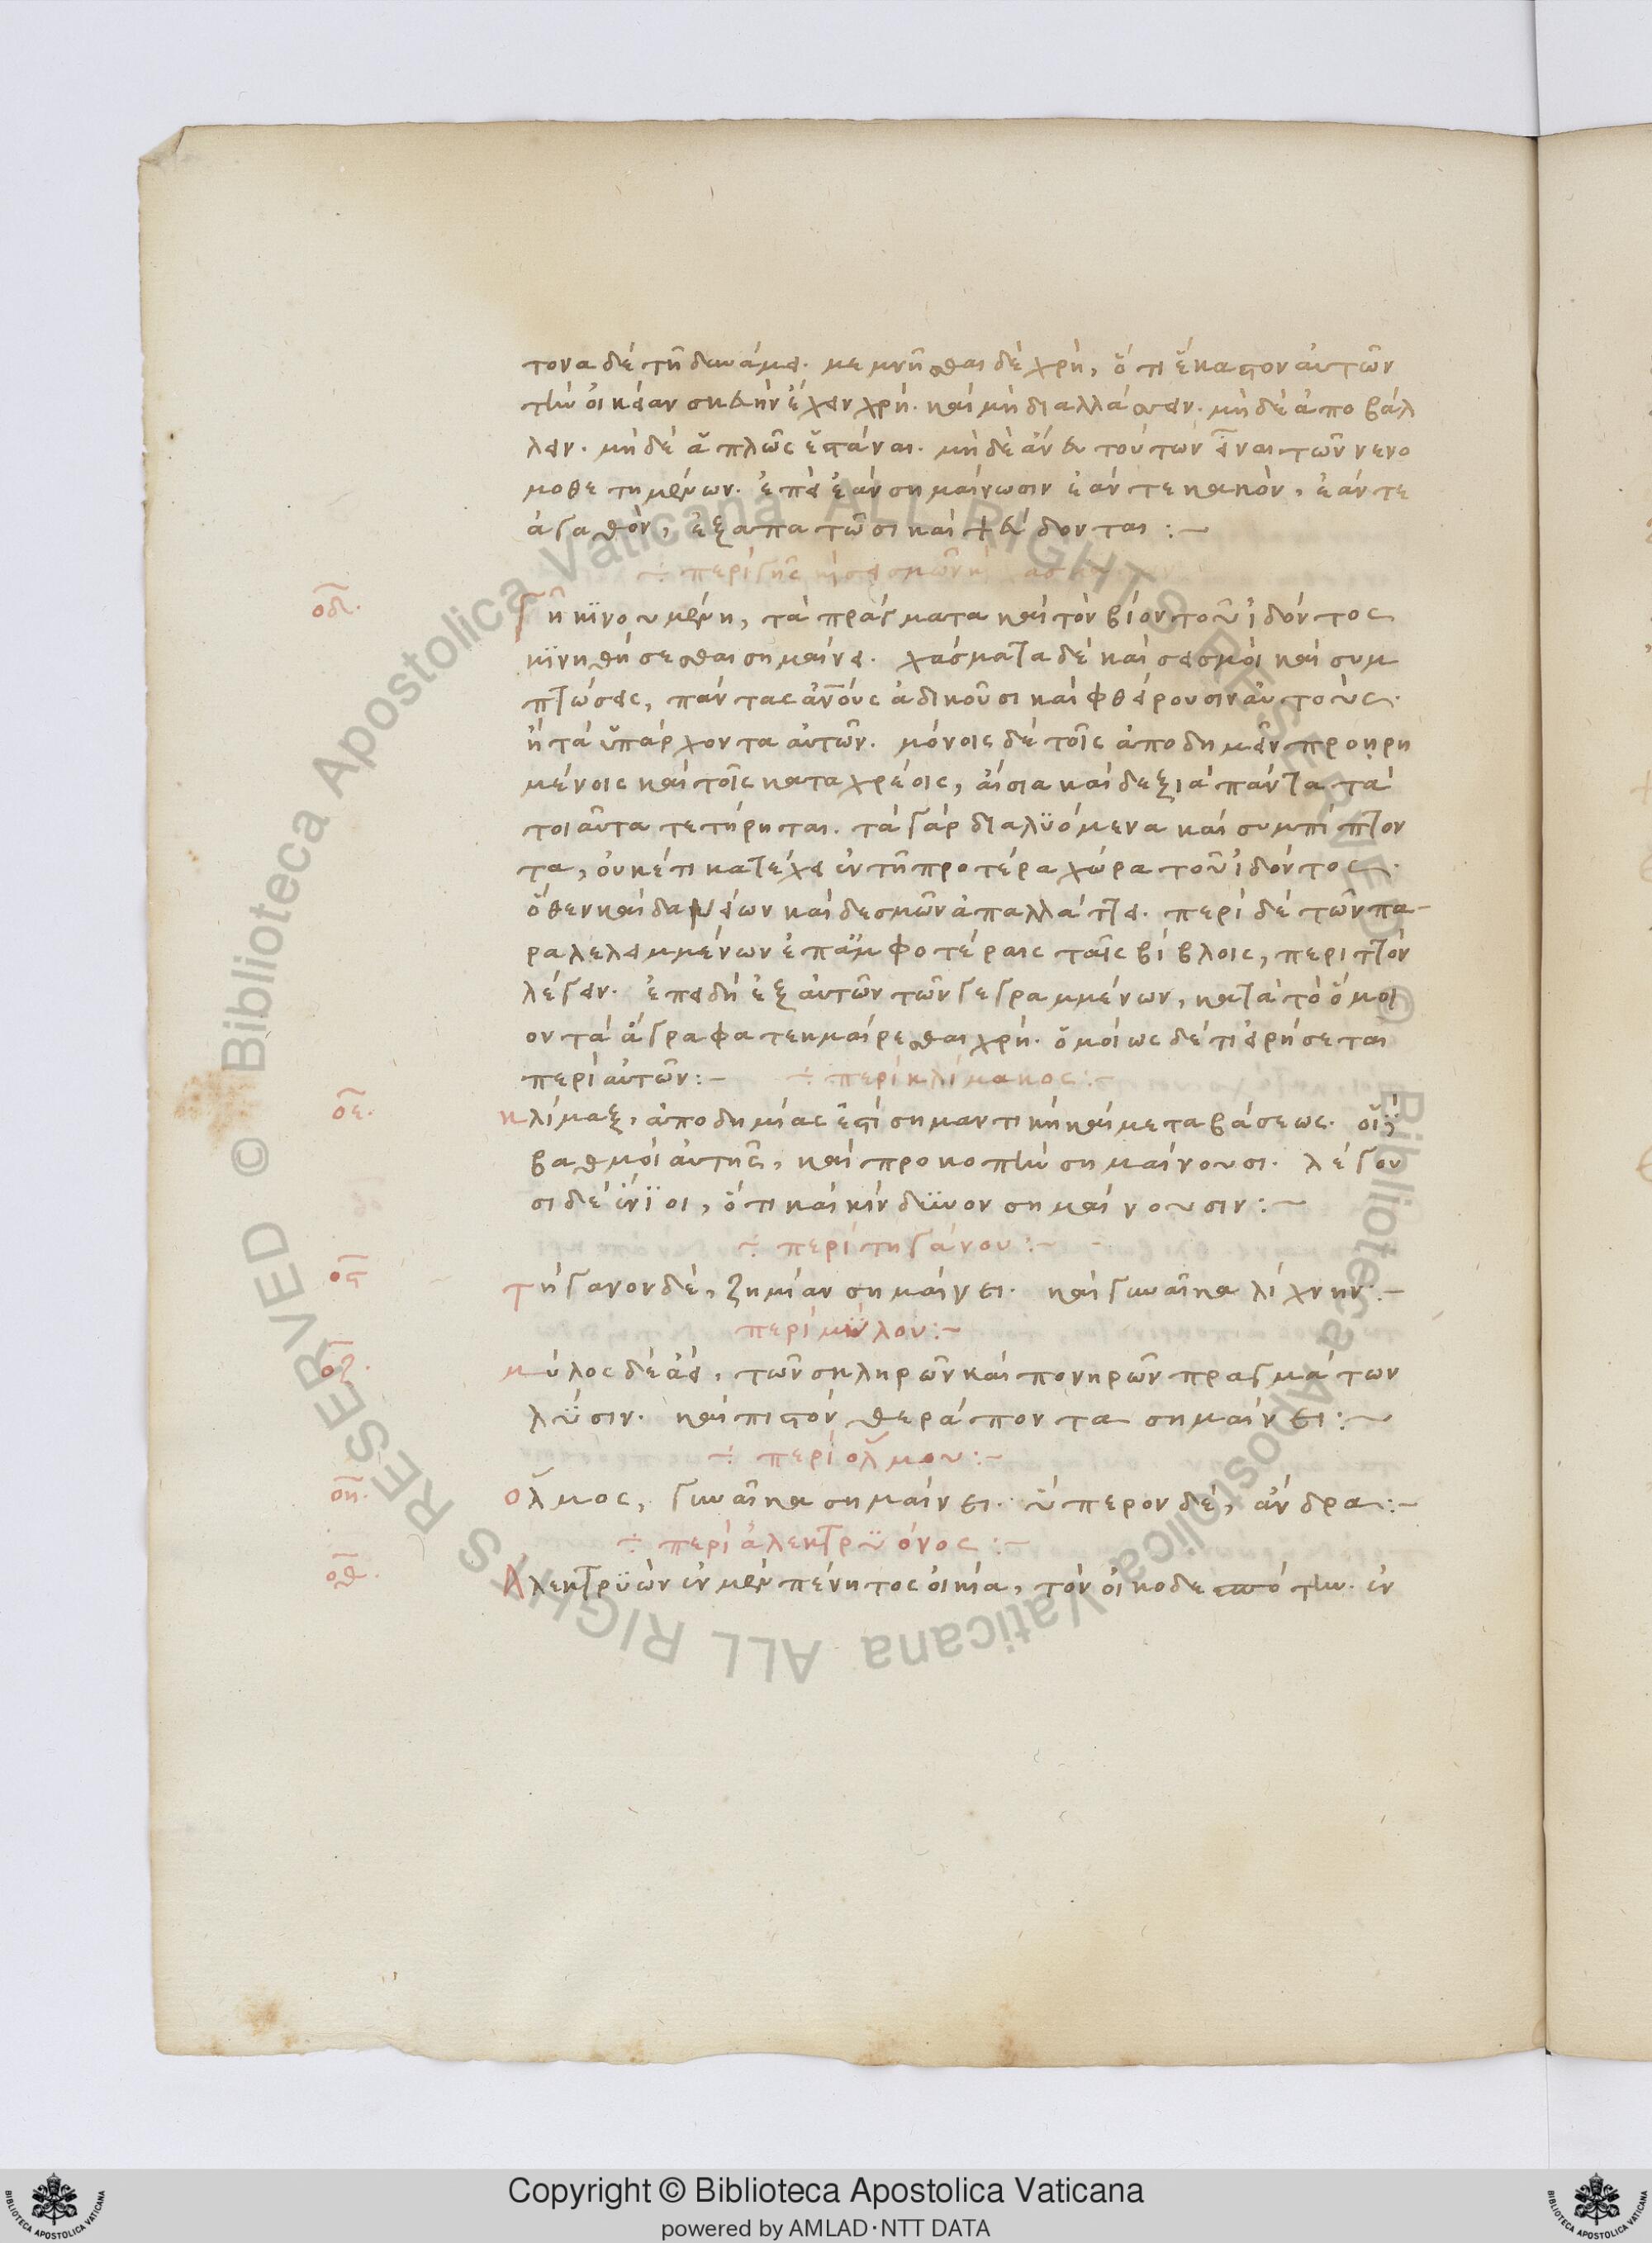 τονα δὲ τῇ δυνάμει. μεμνῆσθαι δὲ χρὴ, ὅτι ἕκαστον αὐτῶν
τὴν οἰκείαν σκευὴν ἔχειν χρὴ. καὶ μὴ διαλλάσσειν. μὴ δὲ ἀποβάλ
λειν. μὴ δὲ ἁπλῶς ἑστάναι. μὴ δὲ ἄνευ τούτων εἶναι τῶν νενο
μοθετημένων. ἐπεὶ ἐὰν σημαίνωσιν ἐάν τε κακὸν, ἐάν τε
ἀγαθὸν, ἐξαπατῶσι καὶ ψεύδονται :~
÷ περὶ γῆς κινήσεως
οδ. Γῆ κϊνουμένη, τὰ πράγματα καὶ τὸν βίον τοῦ ἰδόντος
κϊνηθήσεσθαι σημαίνει. χάσματα δὲ καὶ σεισμοὶ καὶ συμ
πτώσεις, πάντας ἀνους ἀδικοῦσι καὶ φθείρουσιν αὐτοὺς.
ἢ τὰ ὑπάρχοντα αὐτῶν. μόνοις δὲ τοῖς ἀποδημεῖν προῃρη
μένοις καὶ τοῖς καταχρέοις, αἴσια καὶ δεξιὰ πάντα τὰ
τοιαῦτα τετήρηται. τὰ γὰρ διαλϋόμενα καὶ συμπίπτον
τα, οὐκέτι κατέχει ἐν τῇ προτέρα χώρα τοῦ ἰδόντος.
ὅθεν καὶ δανείων καὶ δεσμῶν ἀπαλλάττει. περὶ δὲ τῶν πα-
ραλελειμμένων ἐπ' ἀμφοτέραις ταῖς βίβλοις, περιττὸν
λέγειν. ἐπειδὴ ἐξ αὐτῶν τῶν γεγραμμένων, κατὰ τὸ ὅμοι
ον τὰ ἄγραφα τεκμαίρεσθαι χρὴ. ὁμοίως δέ τι εἰρήσεται
περὶ αὐτῶν :- ÷ περὶ κλίμακος :-
οε. κλίμαξ, ἀποδημίας ἐστὶ σημαντικὴ καὶ μεταβάσεως. οἱ δὲ
βαθμοὶ αὐτῆς, καὶ προκοπὴν σημαίνουσι. λέγου
σι δὲ ἔνϊοι, ὅτι καὶ κίνδϋνον σημαίνουσιν :~
÷ περὶ τηγάνου :-
ος τήγανον δὲ, ζημίαν σημαίνει. καὶ γυναῖκα λίχνην :-
περὶ μϋλου :-
οζ. μύλος δὲ ἀεὶ, τῶν σκληρῶν καὶ πονηρῶν πραγμάτων
λϋσιν. καὶ πιστὸν θεράποντα σημαίνει :~
÷ περὶ ὅλμου :-
οη. ολμος, γυναῖκα σημαίνει. ὕπερον δὲ, ἄνδρα :-
÷ περὶ ἀλεκτρϋόνος :-
οθ. Αλεκτρϋὼν ἐν μὲν πένητος οἰκία, τὸν οἰκοδεσπότην. ἐν
Copyright © Biblioteca Apostolica Vaticana
powered by AMLAD·NTT DATA
© Biblioteca Apostolica Vaticana ALL RIGHTS RESERVED
© Biblioteca Apostolica Vaticana ALL RIGHTS RESERVED
BIBLIOTECA APOSTOLICA VATICANA
BIBLIOTECA APOSTOLICA VATICANA